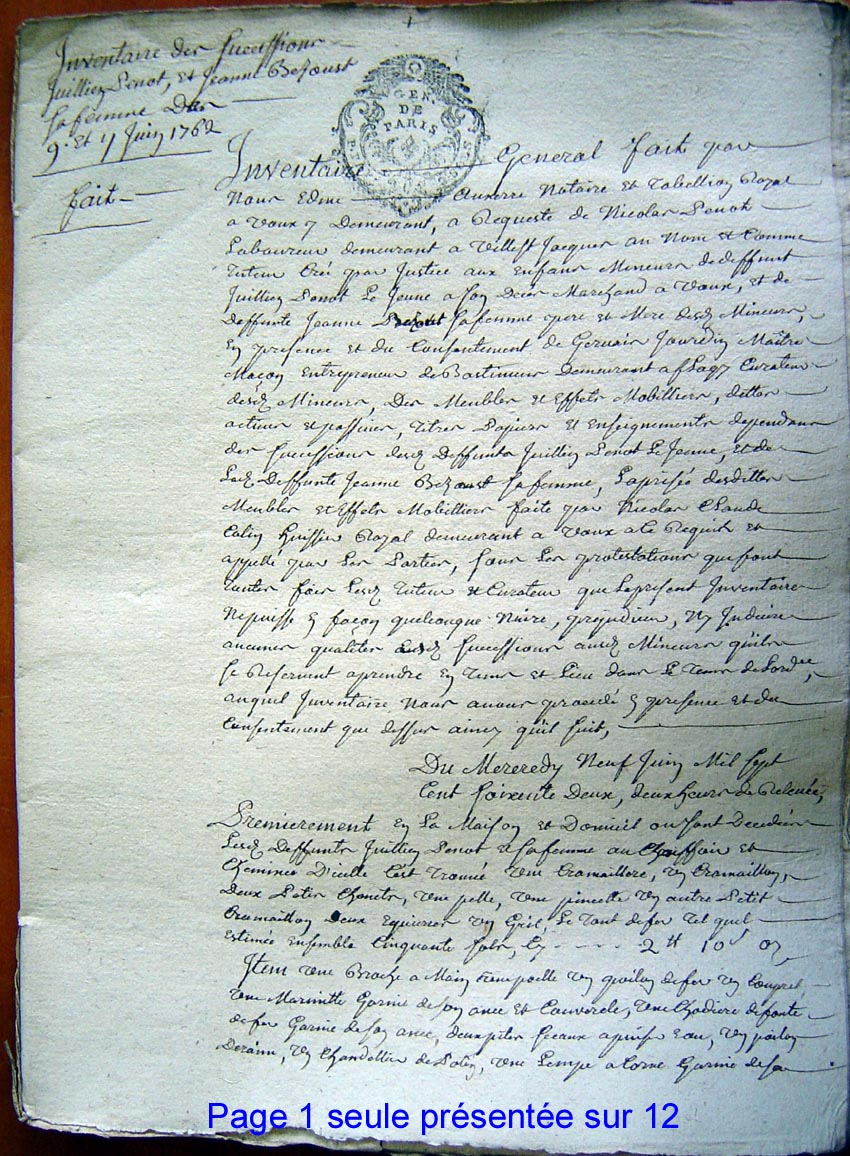 Inventaire des successions
Juillien Penot, et Jeanne Bezoust
sa femme Des
9. Et 11 Juin 1762
fait
GEN.
DE
PARIS
Inventaire General fait par
Nous Edme Auxerre Notaire et Tabellion Royal
a Voux y Demeurant, a Requeste de Nicolas Penot
Laboureur demeurant a Ville St Jacques au Nom et Comme
Tuteur Créé par Justice aux Enfans Mineurs de deffunt
Juillien Penot Le Jeune a son Deces Marchand a Voux, et de
Deffunte Jeanne Bezoust sa femme pere et Mere desd Mineurs,
En presence et du Consentement de Gervais Jourdin Maître
Maçon Entrepreneur de Bastimens Demeurant a flagy Curateur
desd Mineurs, Des Meubles et Effets Mobilliers, dettes
actives et passives, titres Papiers et Enseignements dependans
des successions desd Deffunts Juillien Penot Le Jeune, et de
Lad Deffunte Jeanne Bezoust sa femme, La prisée desdittes
Meubles et Effets Mobilliers faite par Nicolas Claude
Colin huissier Royal demeurant a Voux a ce Requis et
appellé par Les Parties, sous Les protestations que font
Lesd Tuteur et Curateur que Le present Inventaire
Nepuisse En façon quelconque Nuire, prejudicier, Ny Induire
aucunes qualités ausd successions ausd Mineurs quils
se Reservent aprendre En Tems et Lieu dans Le Tems de Lordce,
auquel Inventaire Nous avons procedé En presence et du
Consentement que dessus ainsy quil suit,
Du Mercredy Neuf Juin Mil Sept
Cent soixente Deux, deux heures de Relevée,
Premierement En La Maison et Domicil ou sont Decedés
Lesd Deffunts Juillien Penot et sa femme au Chauffoir et
Cheminée D'icelle s'est Trouvé Une Cramaillere, un Cramaillon,
Deux Petits Chenets, Une pelle, Une pincette Un autre Petit
Cramaillon Deux Equierres Un Gril, Le Tout de fer tel quel
Estimés Ensemble Cinquante sols, Cy - - - - 2 tt 10 s 0 d
Item Une Broche a Main Un poilon de fer Un Coupret
Une Marmitte Garnie de son ance et Couvercle, Une Chodiere de fonte
de fer Garnie de son ance, deux petits seceaux a puiser Eau, Un poilon
Derain, Un Chandellier de Potin, Une Lempe a Corne Garnie de sa
Page 1 seule présentée sur 12